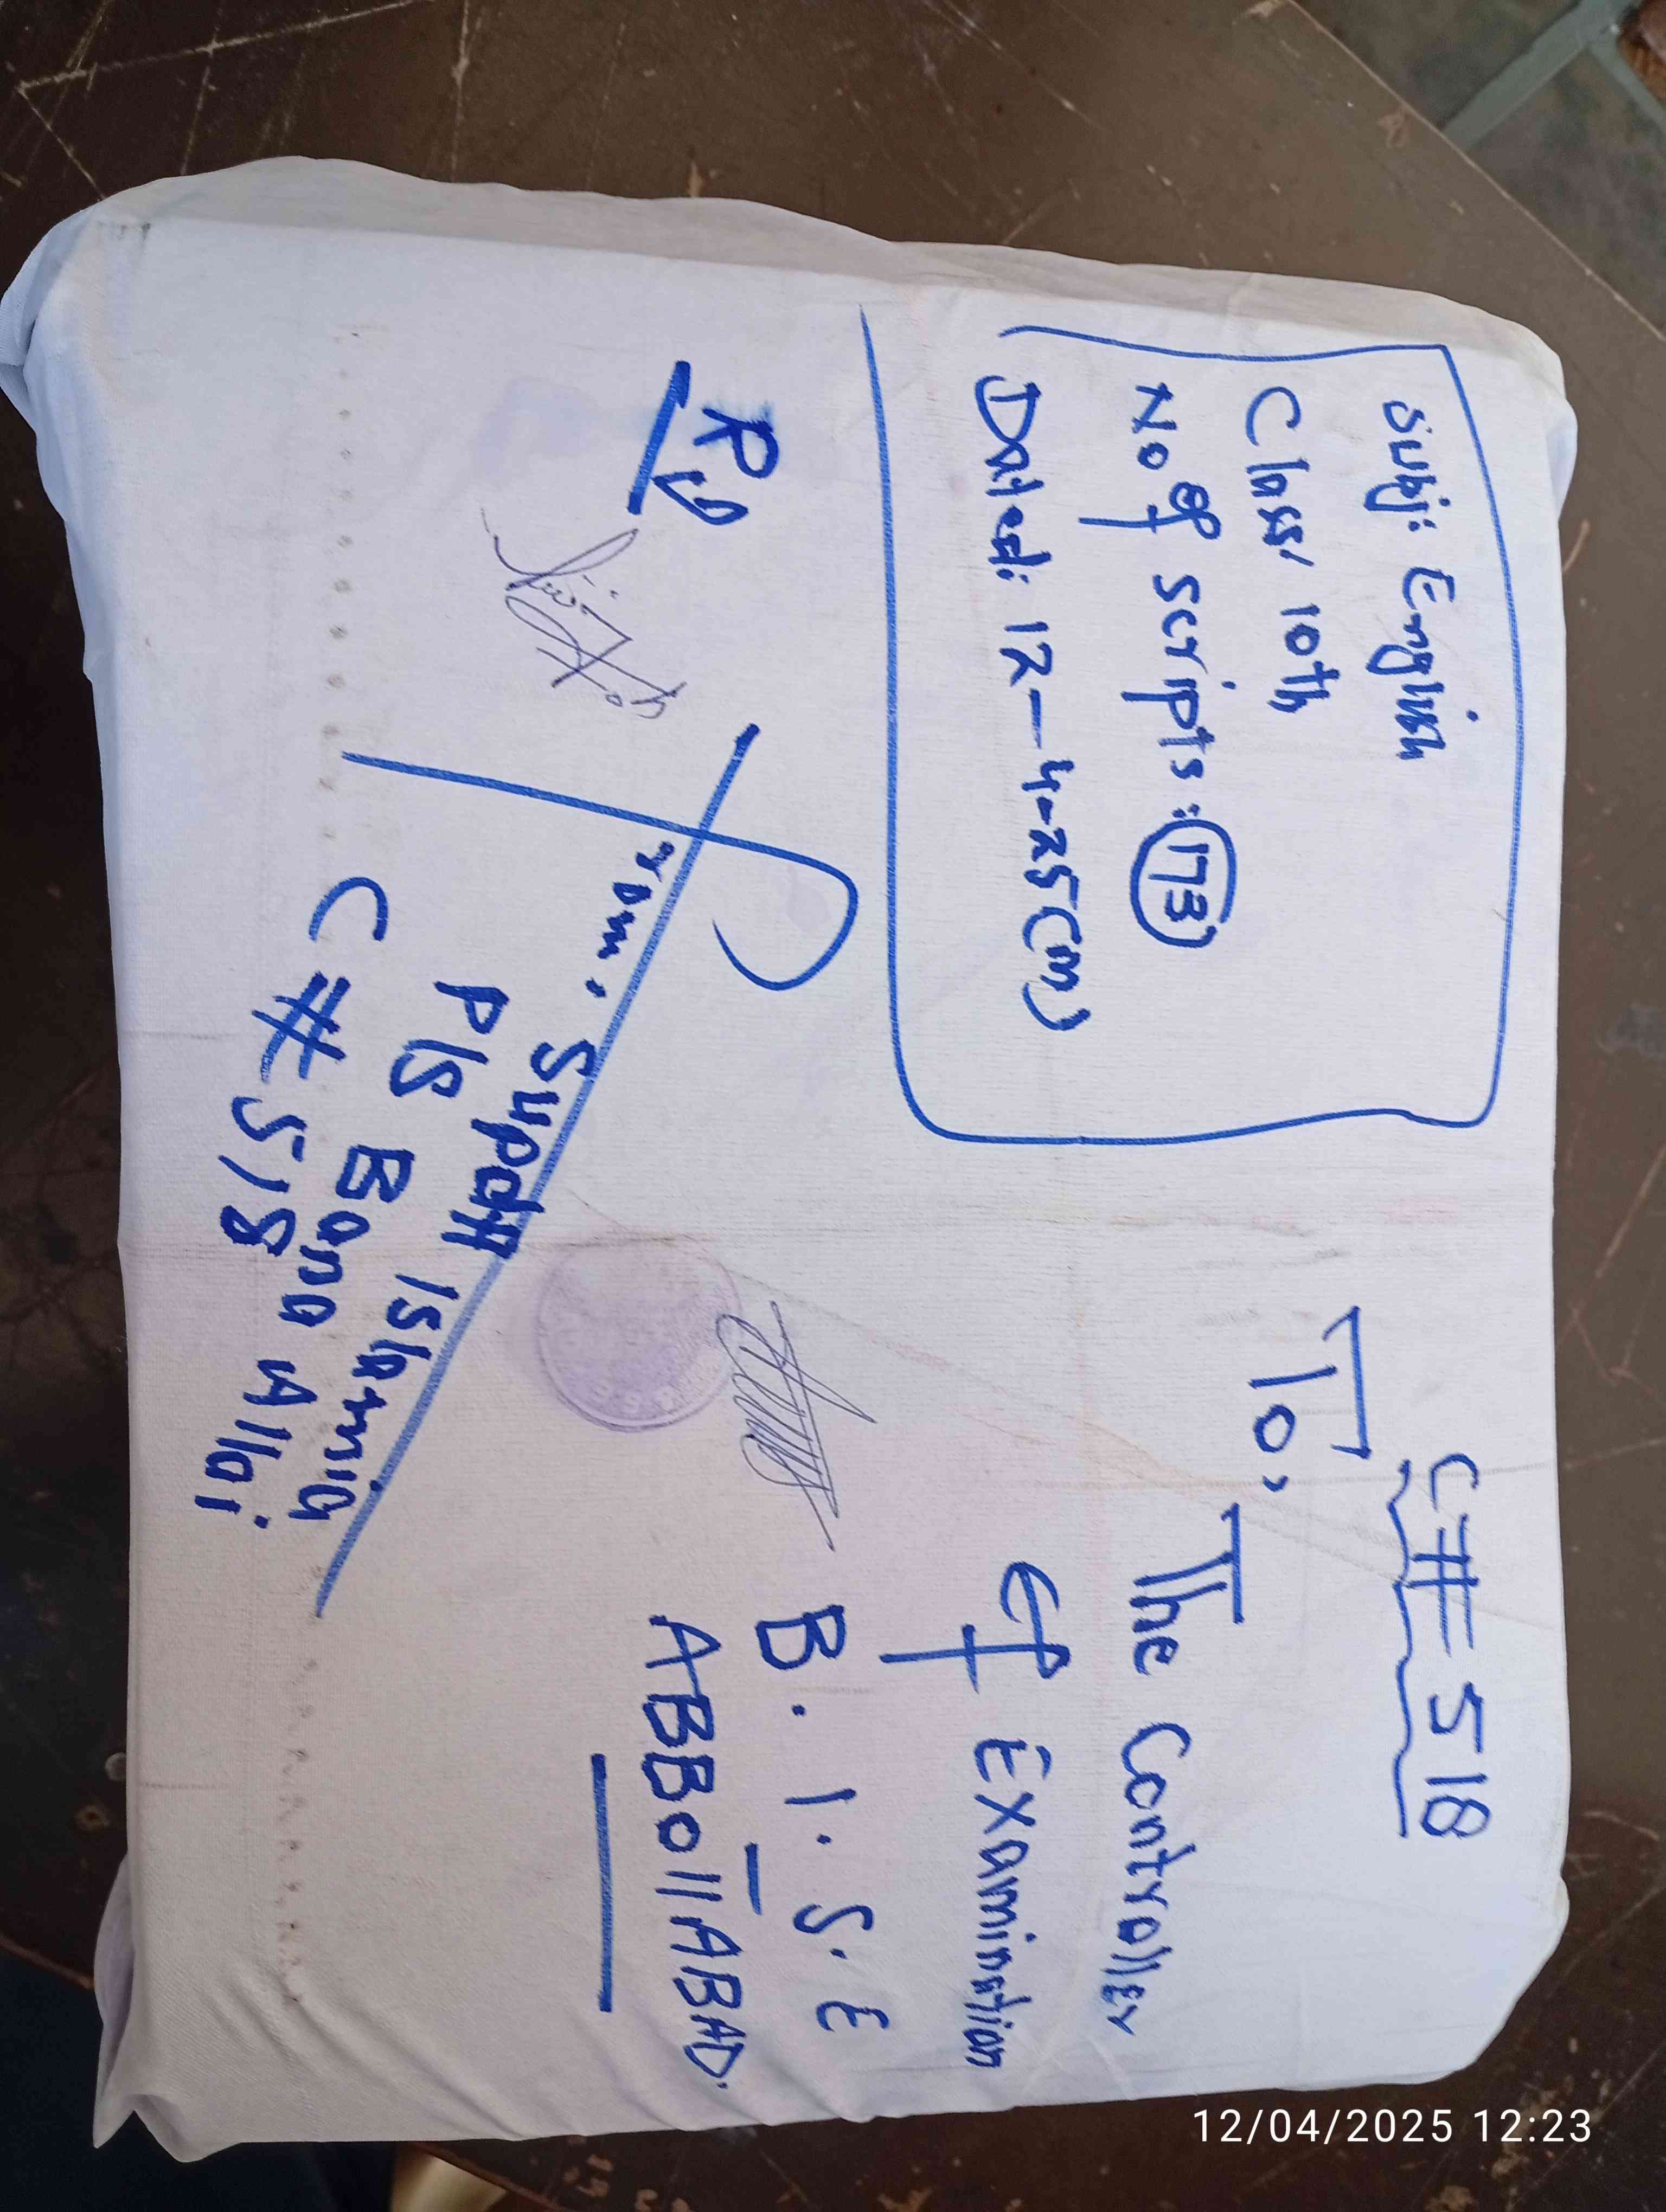 Subj: English
Class 10th
No of scripts: 173
Dated: 12-4-25(m)
C# 518
To,
The Controller
of Examination
B.I.S.E
ABBottABAD.
From, Supdtt Islamia
P/S Bana Allai
C # 518
12/04/2025 12:23